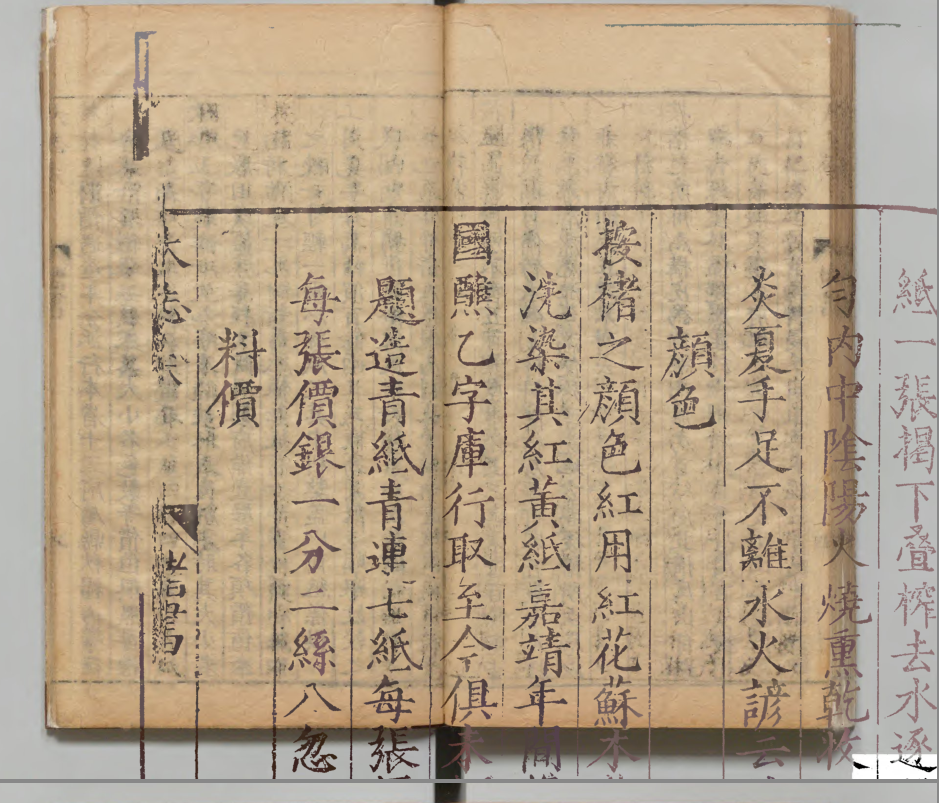 紙一張揭下叠榨去水逐
勻內中陰陽火燒熏乾收
炎夏手足不離水火諺云
顏色
按楮之顏色紅用紅花蘇木
洗染其紅黃紙嘉靖年間
國醮乙字庫行取至今俱未
題造青紙青連七紙每張
每張價銀一分二絲八忽
料價
楮書